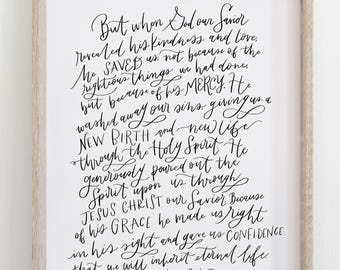 But when God our Savior
revealed his kindness and love,
he SAVED us, not because of the
righteous things we had done,
but because of his MERCY. He
washed away our sins, giving us a
NEW BIRTH and new life
through the Holy Spirit. He
generously poured out the
Spirit upon us through
JESUS CHRIST our Savior. Because
of his GRACE he made us right
in his sight and gave us CONFIDENCE
that we will inherit eternal life.